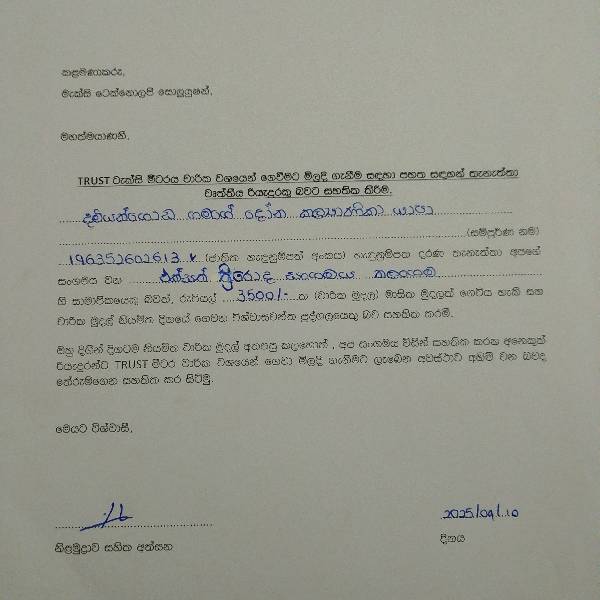 කළමණාකරු,
මැක්සි ටෙක්නොලජි සොලූෂන්,
මහත්මයාණනි,
TRUST ටැක්සි මීටරය වාරික වශයෙන් ගෙවීමට මිලදී ගැනීම සඳහා පහත සඳහන් තැනැත්තා
වෘත්තීය රියැදුරකු බවට සහතික කිරීම.
ගමගේ දෝන කල්‍යාණිකා යාපා
(සම්පූර්ණ නම)
(ජාතික හැඳුනුම්පත් අංකය) හැඳුනුම්පත දරණ තැනැත්තා අපගේ
සංගමය වන එක්සත් ත්‍රීරෝද සංගමය
හි සාමාජිකයෙකු බවත්, රුපියල් 3500/- ක (වාරික මුදල) මාසික මුදලක් ගෙවිය හැකි සහ
වාරික මුදල් නියමිත දිනයේ ගෙවන විශ්වාසවන්ත පුද්ගලයෙකු බව සහතික කරමි.
ඔහු දිගින් දිගටම නියමිත වාරික මුදල් අතපසු කළහොත් , අප සංගමය විසින් සහතික කරන අනෙකුත්
රියැදුරන්ට TRUST මීටර වාරික වශයෙන් ගෙවා මිලදී ගැනීමට ලැබෙන අවස්ථාව අහිමි වන බවද
තේරුම්ගෙන සහතික කර සිටිමු.
මෙයට විශ්වාසී,
2025/09/10
නිළමුද්‍රාව සහිත අත්සන
දිනය